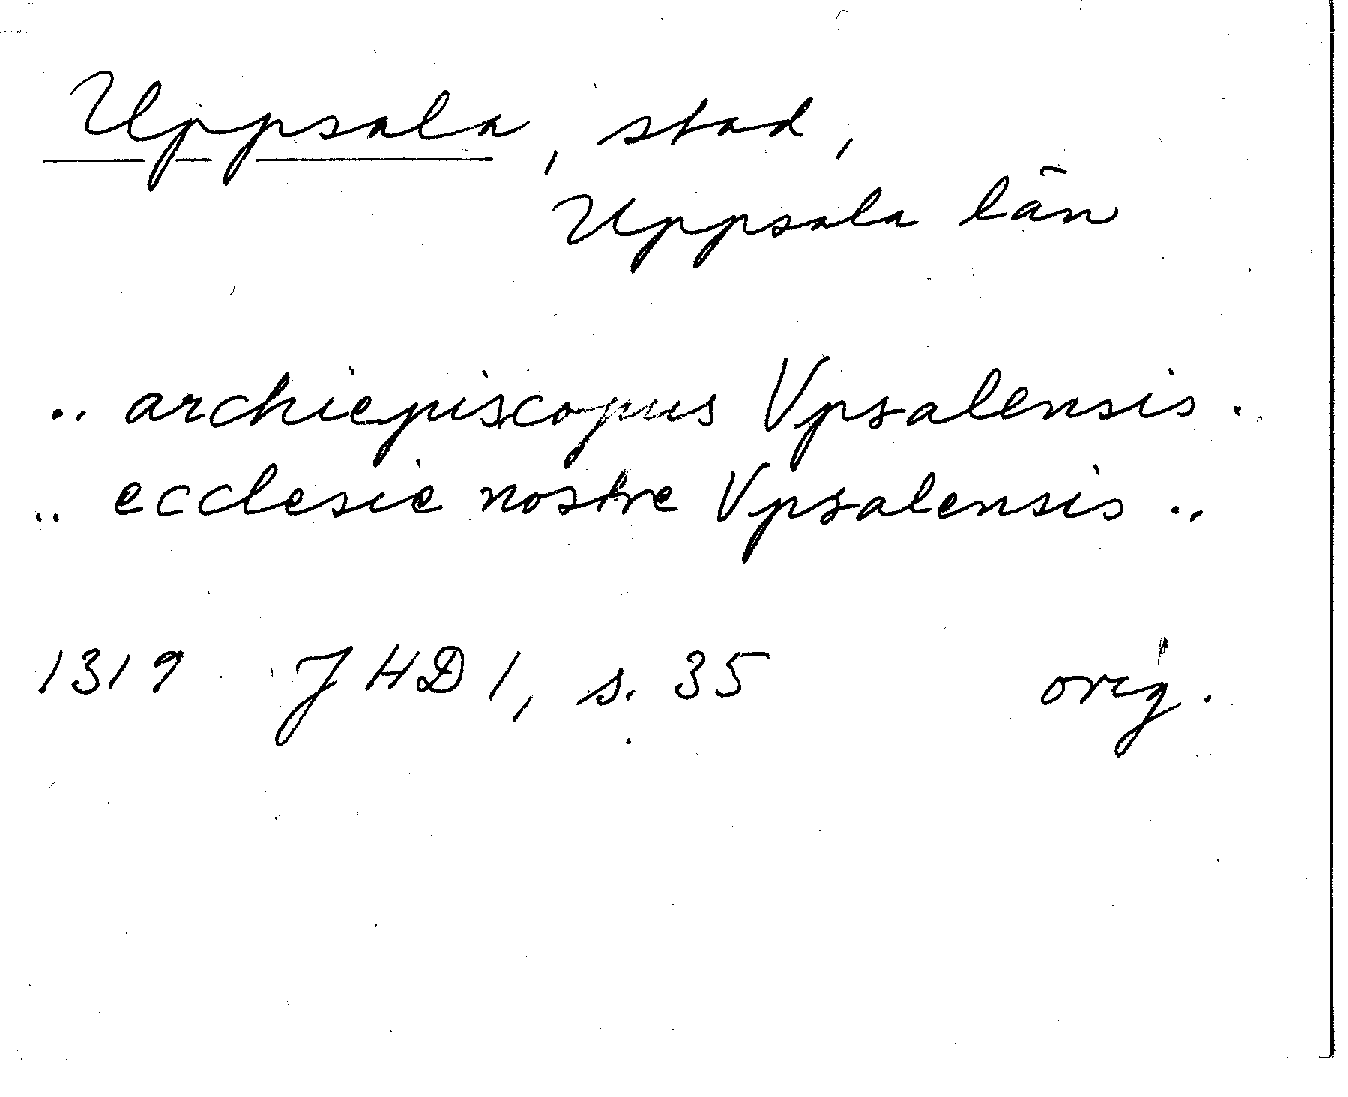 Uppsala, stad,
Uppsala län
.. archiepiscopus Vpsalensis .
.. ecclesie nostre Vpsalensis ..
1319 JHD 1, s. 35 orig.